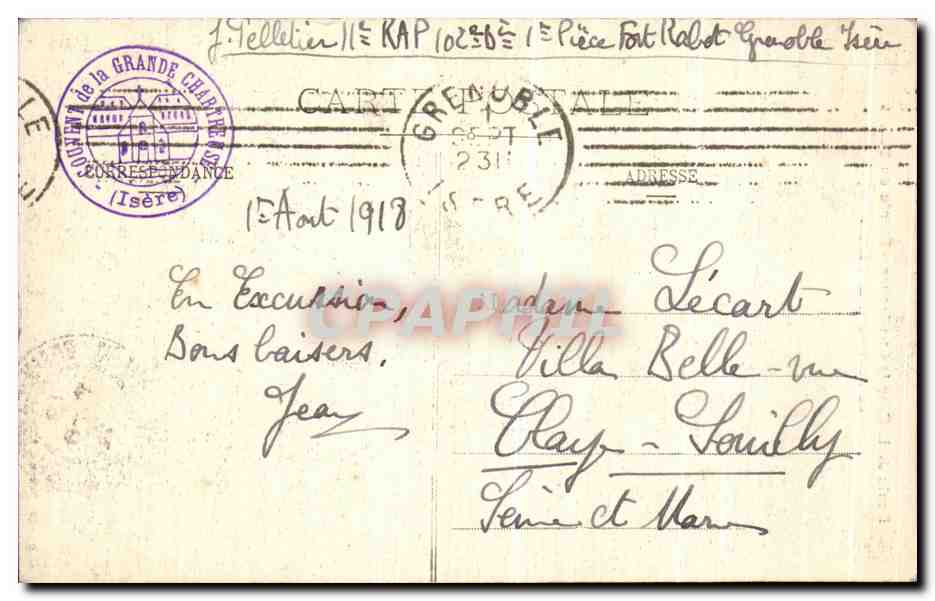 J. Pelletier 11e RAP 102e Bie 1e Pièce Fort Rabot Grenoble Isère
SOUVENIR de la GRANDE CHARTREUSE
(Isère)
CARTE POSTALE
GRENOBLE
231
CORRESPONDANCE
ADRESSE
1er Aout 1918
En Excursion,
Bons baisers.
Jean
Madame Lécart
Villa Belle-vue
Claye-Souilly
Seine et Marne
CPAPHIL